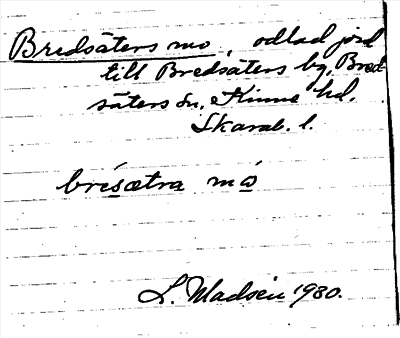 Bredsäters mo, odlad jord
till Bredsäters by, Bred
säters sn, Kinne hd.
Skarab. l.
brésætra mό
L. Madsén 1930.